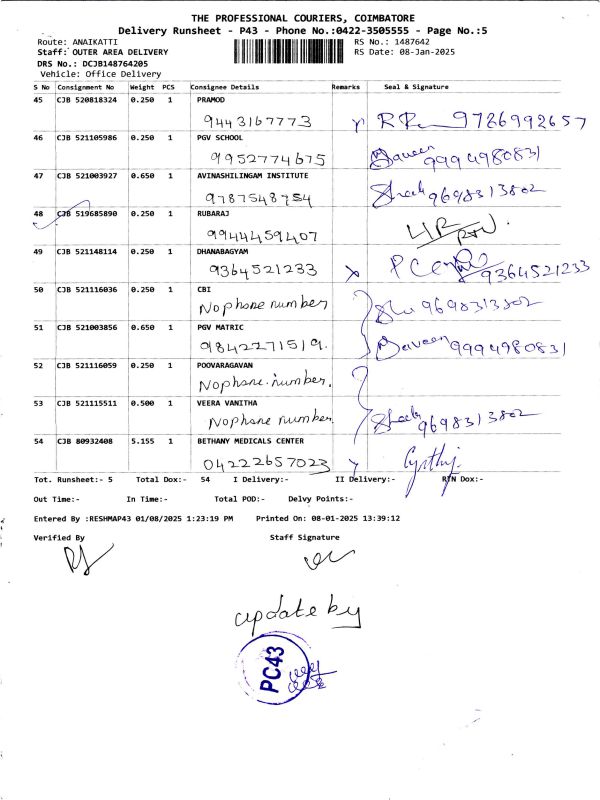 THE PROFESSIONAL COURIERS, COIMBATORE
Delivery Runsheet - P43 - Phone No.:0422-3505555 - Page No.:5
Route: ANAIKATTI RS No.: 1487642
Staff: OUTER AREA DELIVERY RS Date: 08-Jan-2025
DRS No.: DCJB148764205
Vehicle: Office Delivery
S No Consignment No Weight PCS Consignee Details Remarks Seal & Signature
45 CJB 520818324 0.250 1 PRAMOD
9443167773 9726992657
46 CJB 521105986 0.250 1 PGV SCHOOL
9952774675 Daveen 9994980831
47 CJB 521003927 0.650 1 AVINASHILINGAM INSTITUTE
9787548754 9698313802
48 CJB 519685890 0.250 1 RUBARAJ
9944459407
49 CJB 521148114 0.250 1 DHANABAGYAM
9364521233 9364521233
50 CJB 521116036 0.250 1 CBI
No phone number 9698313802
51 CJB 521003856 0.650 1 PGV MATRIC
9842271519. Daveen 9994980831
52 CJB 521116059 0.250 1 POOVARAGAVAN
No phone number.
53 CJB 521115511 0.500 1 VEERA VANITHA
No phone number. 9698313802
54 CJB 80932408 5.155 1 BETHANY MEDICALS CENTER
04222657023
Tot. Runsheet:- 5 Total Dox:- 54 I Delivery:- II Delivery:- RTN Dox:-
Out Time:- In Time:- Total POD:- Delvy Points:-
Entered By :RESHMAP43 01/08/2025 1:23:19 PM Printed On: 08-01-2025 13:39:12
Verified By Staff Signature
update by
PC43